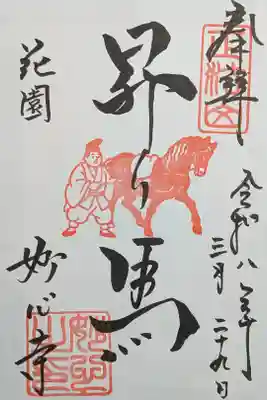 奉拝
正法山
令和八年
三月二十九日
昇り馬
花園
妙心寺